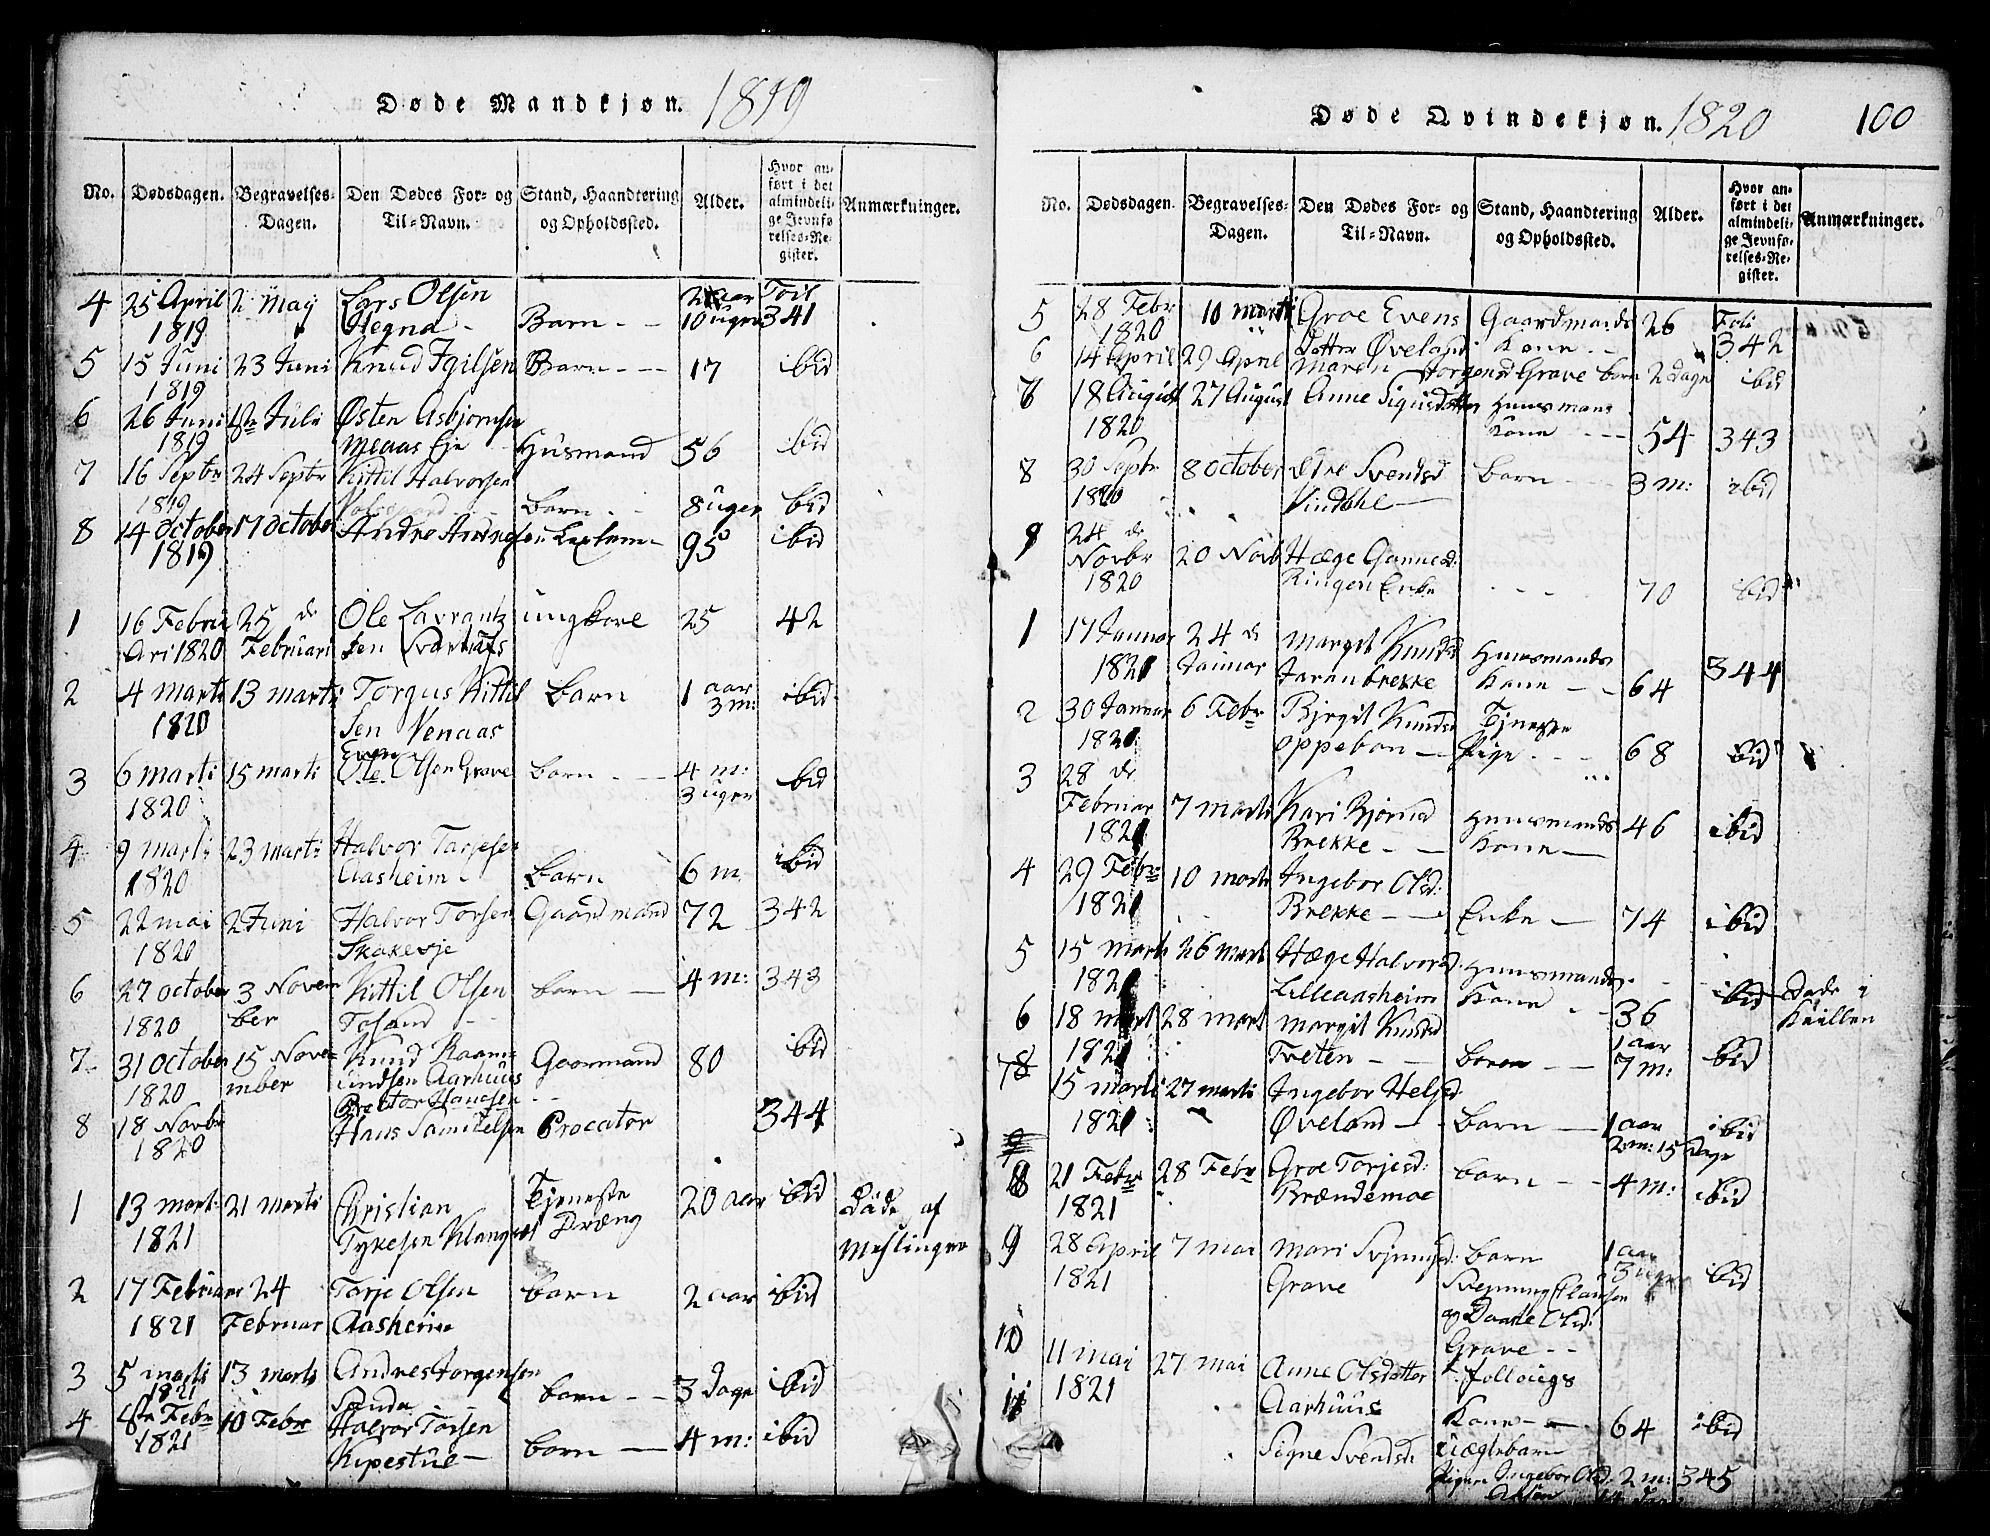 Døde Mandkjøn. 1819
No. Dødsdagen. Begravelses-Dagen. Den Dødes For- og Til-Navn. Stand, Haandtering og Opholdssted. Alder. Hvor anført i det almindelige Jevnførelses-Register. Anmærkninger.
4 25 April 2 May Lars Olsen 2 aar Foil
1819 Hegna - Barn - - 10 uger 341
5 15 Juni 23 Juni Knud Igilsen Barn - - 17 ibid
1819
6 26 Juni 1ste Juli Østen Asbjørnsen
1819 Meaas Eje Husmand 56 ibid
7 16 Septr 24 Septr Kittil Halvorsen
1819 barn - - 8 uger ibid
8 14 October 17 October Andre Andresen 95 ibid
1819
1 16 Febru 25 de Ole Lavrantz ungkarl 25 42
Ari 1820 Februari sen
2 4 marti 13 marti Torgus Kittil barn 1 aar ibid
1820 sen Venaas 3 m:
Even
3 6 marti 15 marti Ole Olsen Grave barn - - 4 m: ibid
1820 3 uger
4 9 marti 23 marti Halvor Tarjesen ibid
1820 Aasheim - Barn 6 m
5 22 mai 2 Juni Halvor Torsen Gaardmand 72 342
1820 Skakesje
6 27 october 3 Novem Kittil Olsen barn - 4 m: 343
1820 ber Tosand
7 31 October 15 Nove Knud Raam- Gaarmand 80 ibid
1820 mber undsen Aarhuus
8 18 Novbr Hans Samuelsen Procator 344
1820
1 13 mart: 21 marti Christian Tjeneste 20 aar ibid Døde af
1821 Tykesen Klanges Dræng Meslinger
2 17 Februar 24 Tarje Olsen barn 2 aar ibid
1821 Februar Aasheim
3 5 marti 13 marti Andres Jorgensen
1821 Sanda barn - - 3 Dage ibid
4 8de Febr 10 Febr Halvor Torsen
1821 Kipestue - barn - 4 m: ibid
Døde Qvindekjøn. 1820 100
No. Dødsdagen. Begravelses-Dagen. Den Dødes For- og Til-Navn. Stand, Haandtering og Opholdssted. Alder. Hvor anført i det almindelige Jevnførelses-Register. Anmærkninger.
5 28 Febr 10 marti Groe Evens Gaardmands 26 Foli
1820 Datter Øveland Kone - - 342
6 14 April 29 April Maren Jorgensd Grave barn 2 dage ibid
7 18 August 27 August Anne Sigursdatter Huusmans
1820 Kone - - 54 343
8 30 Septr 8 October Svendsd barn - - 3 m: ibid
1820 Vindahl -
9 24 de
Novbr 20 Novb Hæge Gunnesd:
1820 Ringen Enke - - - 70 ibid
1 17 Januar 24 de Margit Knudsd Huusmands
1821 Januar Jaranbrekke Kone - - 64 344
2 30 Januar 6 Febr Birgit Knudsd Tjeneste
1821 oppebøn - Pige - - 68 ibid
3 28 de
Februar 7 marti Kari Bjørnsd Huusmands 46 ibid
1821 Brekke - - Kone -
4 29 Febr: 10 marti Ingebor Olsd:
1821 Brekke - - Enke - 74 ibid
5 15 marti 26 marti Hæge Halvorsd Huusmands
1821 Lilleaasheim Kone - - 36 ibid Døde i
6 18 mart 28 mart Margit Knudsd 1 aar
1821 Tveten - - barn - - 7 m: ibid
7 15 marti 27 marti Ingebor Helsed
1821 Øveland - - barn - 1 aar ibid
2 m: 15 Dage
8 21 Febr 28 Febr Groe Torjesd: barn - - 4 m: ibid
1821 Brændemoe
9 28 April 7 mai Mari Svjnungsd: barn 1 aar
1821 Grave Svenung Clausen 3 uger ibid
og Daatle Olsd:
Grave - -
10 11 mai 27 mai Anne Olsdatter
1821 Aarhuus Kone - - 64 ibid
11 Signe Svendsd: uægtebarn
Ingebor Olsd: 2 m: 345